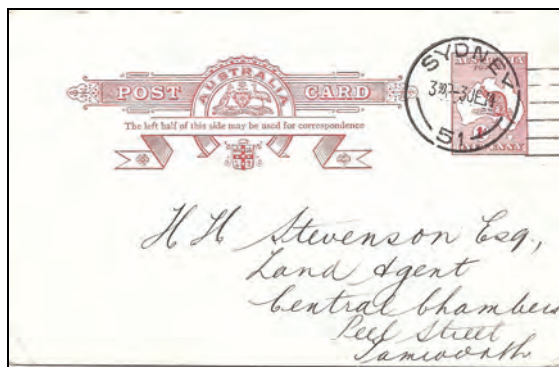 AUSTRALIA
POST CARD
The left half of this side may be used for correspondence
SYDNEY
51
AUSTRALIA
PENNY
H H Stevenson Esq.,
Land Agent
Central Chambers
Peel Street
Tamworth